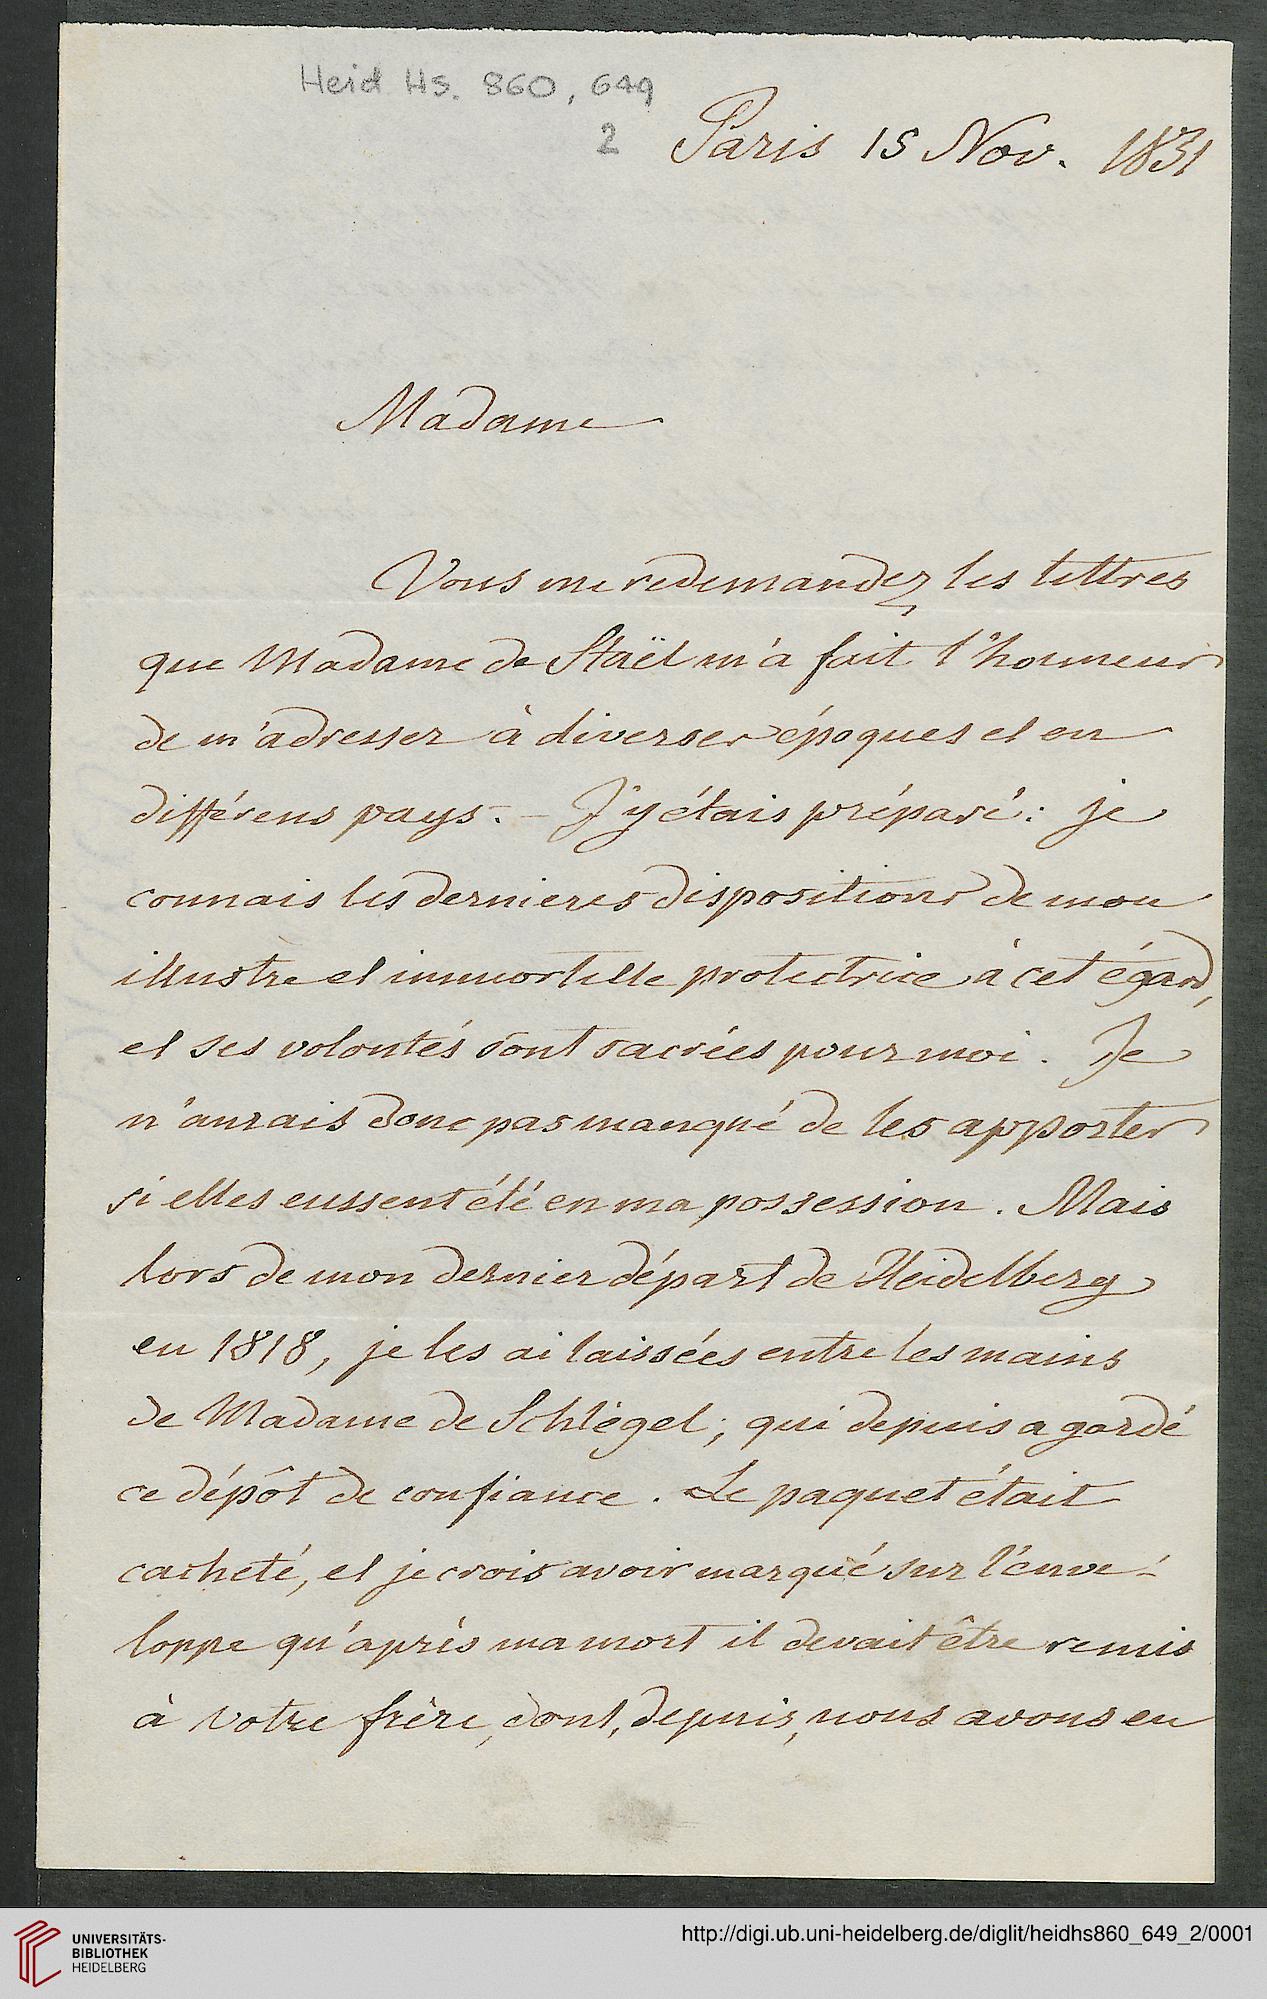 Heid Hs. 860, 649
2
Paris 15 Nov. 1831
Madame
Vous me redemandez les lettres
que Madame de Staël m'a fait l'honneur
de m'adresser à diverses époques et en
différens pays. – J'y étais préparé: je
connais les dernieres dispositions de mon
illustre et immortelle protectrice à cet égard,
et ses volontés sont sacrées pour moi. Je
n'aurais donc pas manqué de les apporter
si elles eussent été en ma possession. Mais
lors de mon dernier départ de Heidelberg
en 1818, je les ai laissées entre les mains
de Madame de Schlegel, qui depuis a gardé
ce dépôt de confiance. Le paquet était
cacheté, et je crois avoir marqué sur l'enve-
loppe qu'après ma mort il devait être remis
à votre frère, dont, depuis, nous avons eu
UNIVERSITÄTS-
BIBLIOTHEK
HEIDELBERG
http://digi.ub.uni-heidelberg.de/diglit/heidhs860_649_2/0001